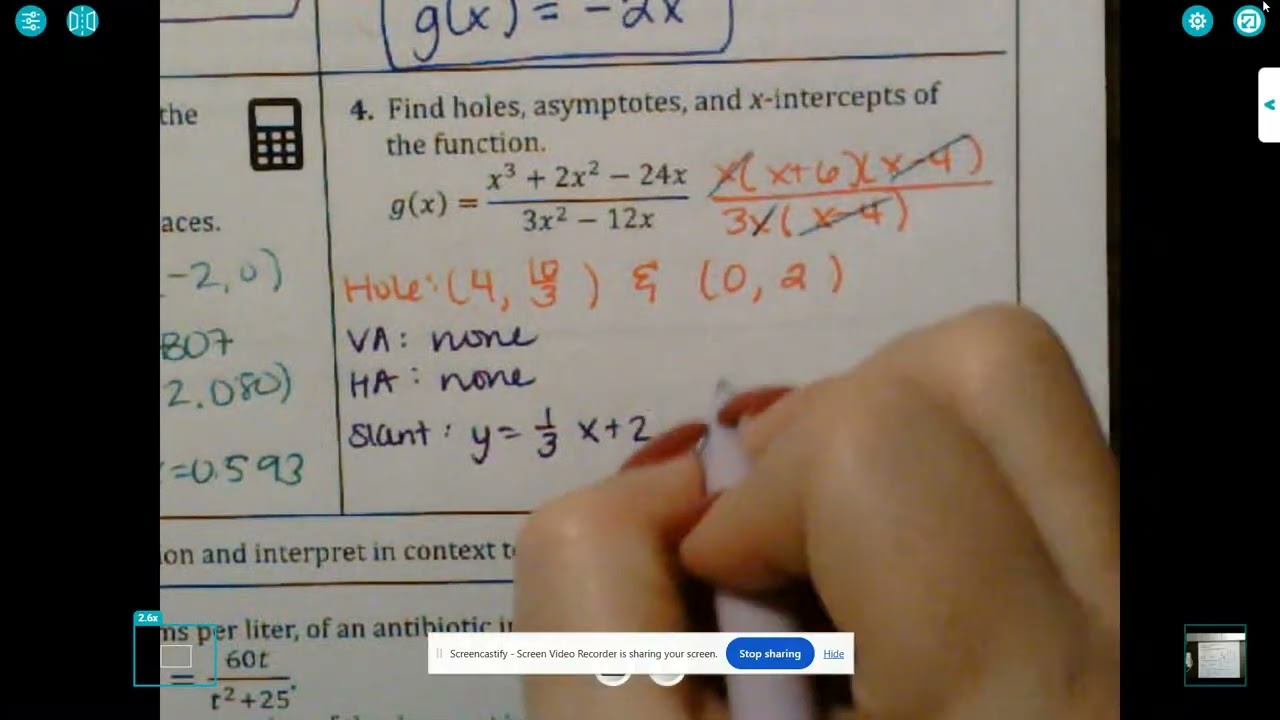 g(x) = -2x
the
4. Find holes, asymptotes, and x-intercepts of
the function.
g(x) = \frac{x^3 + 2x^2 - 24x}{3x^2 - 12x} \frac{x(x+6)(x-4)}{3x(x-4)}
aces.
-2, 0)
Hole: (4, \frac{10}{3}) & (0, 2)
807
VA: none
2.080)
HA: none
Slant: y = \frac{1}{3} x+2
=0.593
on and interpret in context t
ms per liter, of an antibiotic i
= \frac{60t}{t^2+25}.
2.6x
Screencastify - Screen Video Recorder is sharing your screen.
Stop sharing
Hide